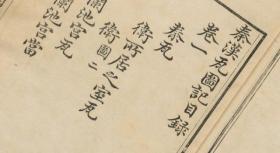 秦漢瓦圖記目錄
卷一
秦瓦
衛所居之室瓦
衛圖二
蘭池宮瓦
蘭池宮當